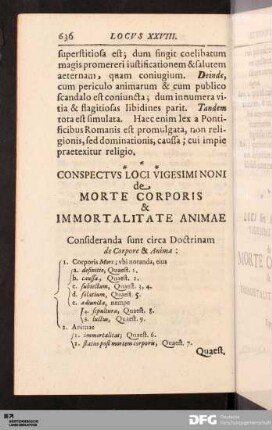 636 LOCVS XXVIII.
superstitiosa est; dum fingit coelibatum
magis promereri iustificationem & salutem
aeternam, quam coniugium. Deinde,
cum periculo animarum & cum publico
scandalo est coniuncta; dum innumera vi-
tia & flagitiosas libidines parit. Tandem
tota est simulata. Haec enim lex a Ponti-
ficibus Romanis est promulgata, non reli-
gionis, sed dominationis, caussa; cui impie
praetexitur religio.
* * *
CONSPECTVS LOCI VIGESIMI NONI
de
MORTE CORPORIS
&
IMMORTALITATE ANIMAE
Consideranda sunt circa Doctrinam
de Corpore & Anima:
1. Corporis Mors; vbi notanda, eius
a. definitio, Quaest. 1.
b. caussa, Quaest. 2.
c. subiectum, Quaest. 3. 4.
d. solatium, Quaest. 5.
e. adiuncta, nempe
1. sepultura, Quaest. 8.
2. luctus, Quaest. 9.
2. Animae
1. immortalitas; Quaest. 6.
2. status post mortem corporis, Quaest. 7.
Quaest.
DFG Deutsche
Forschungsgemeinschaft